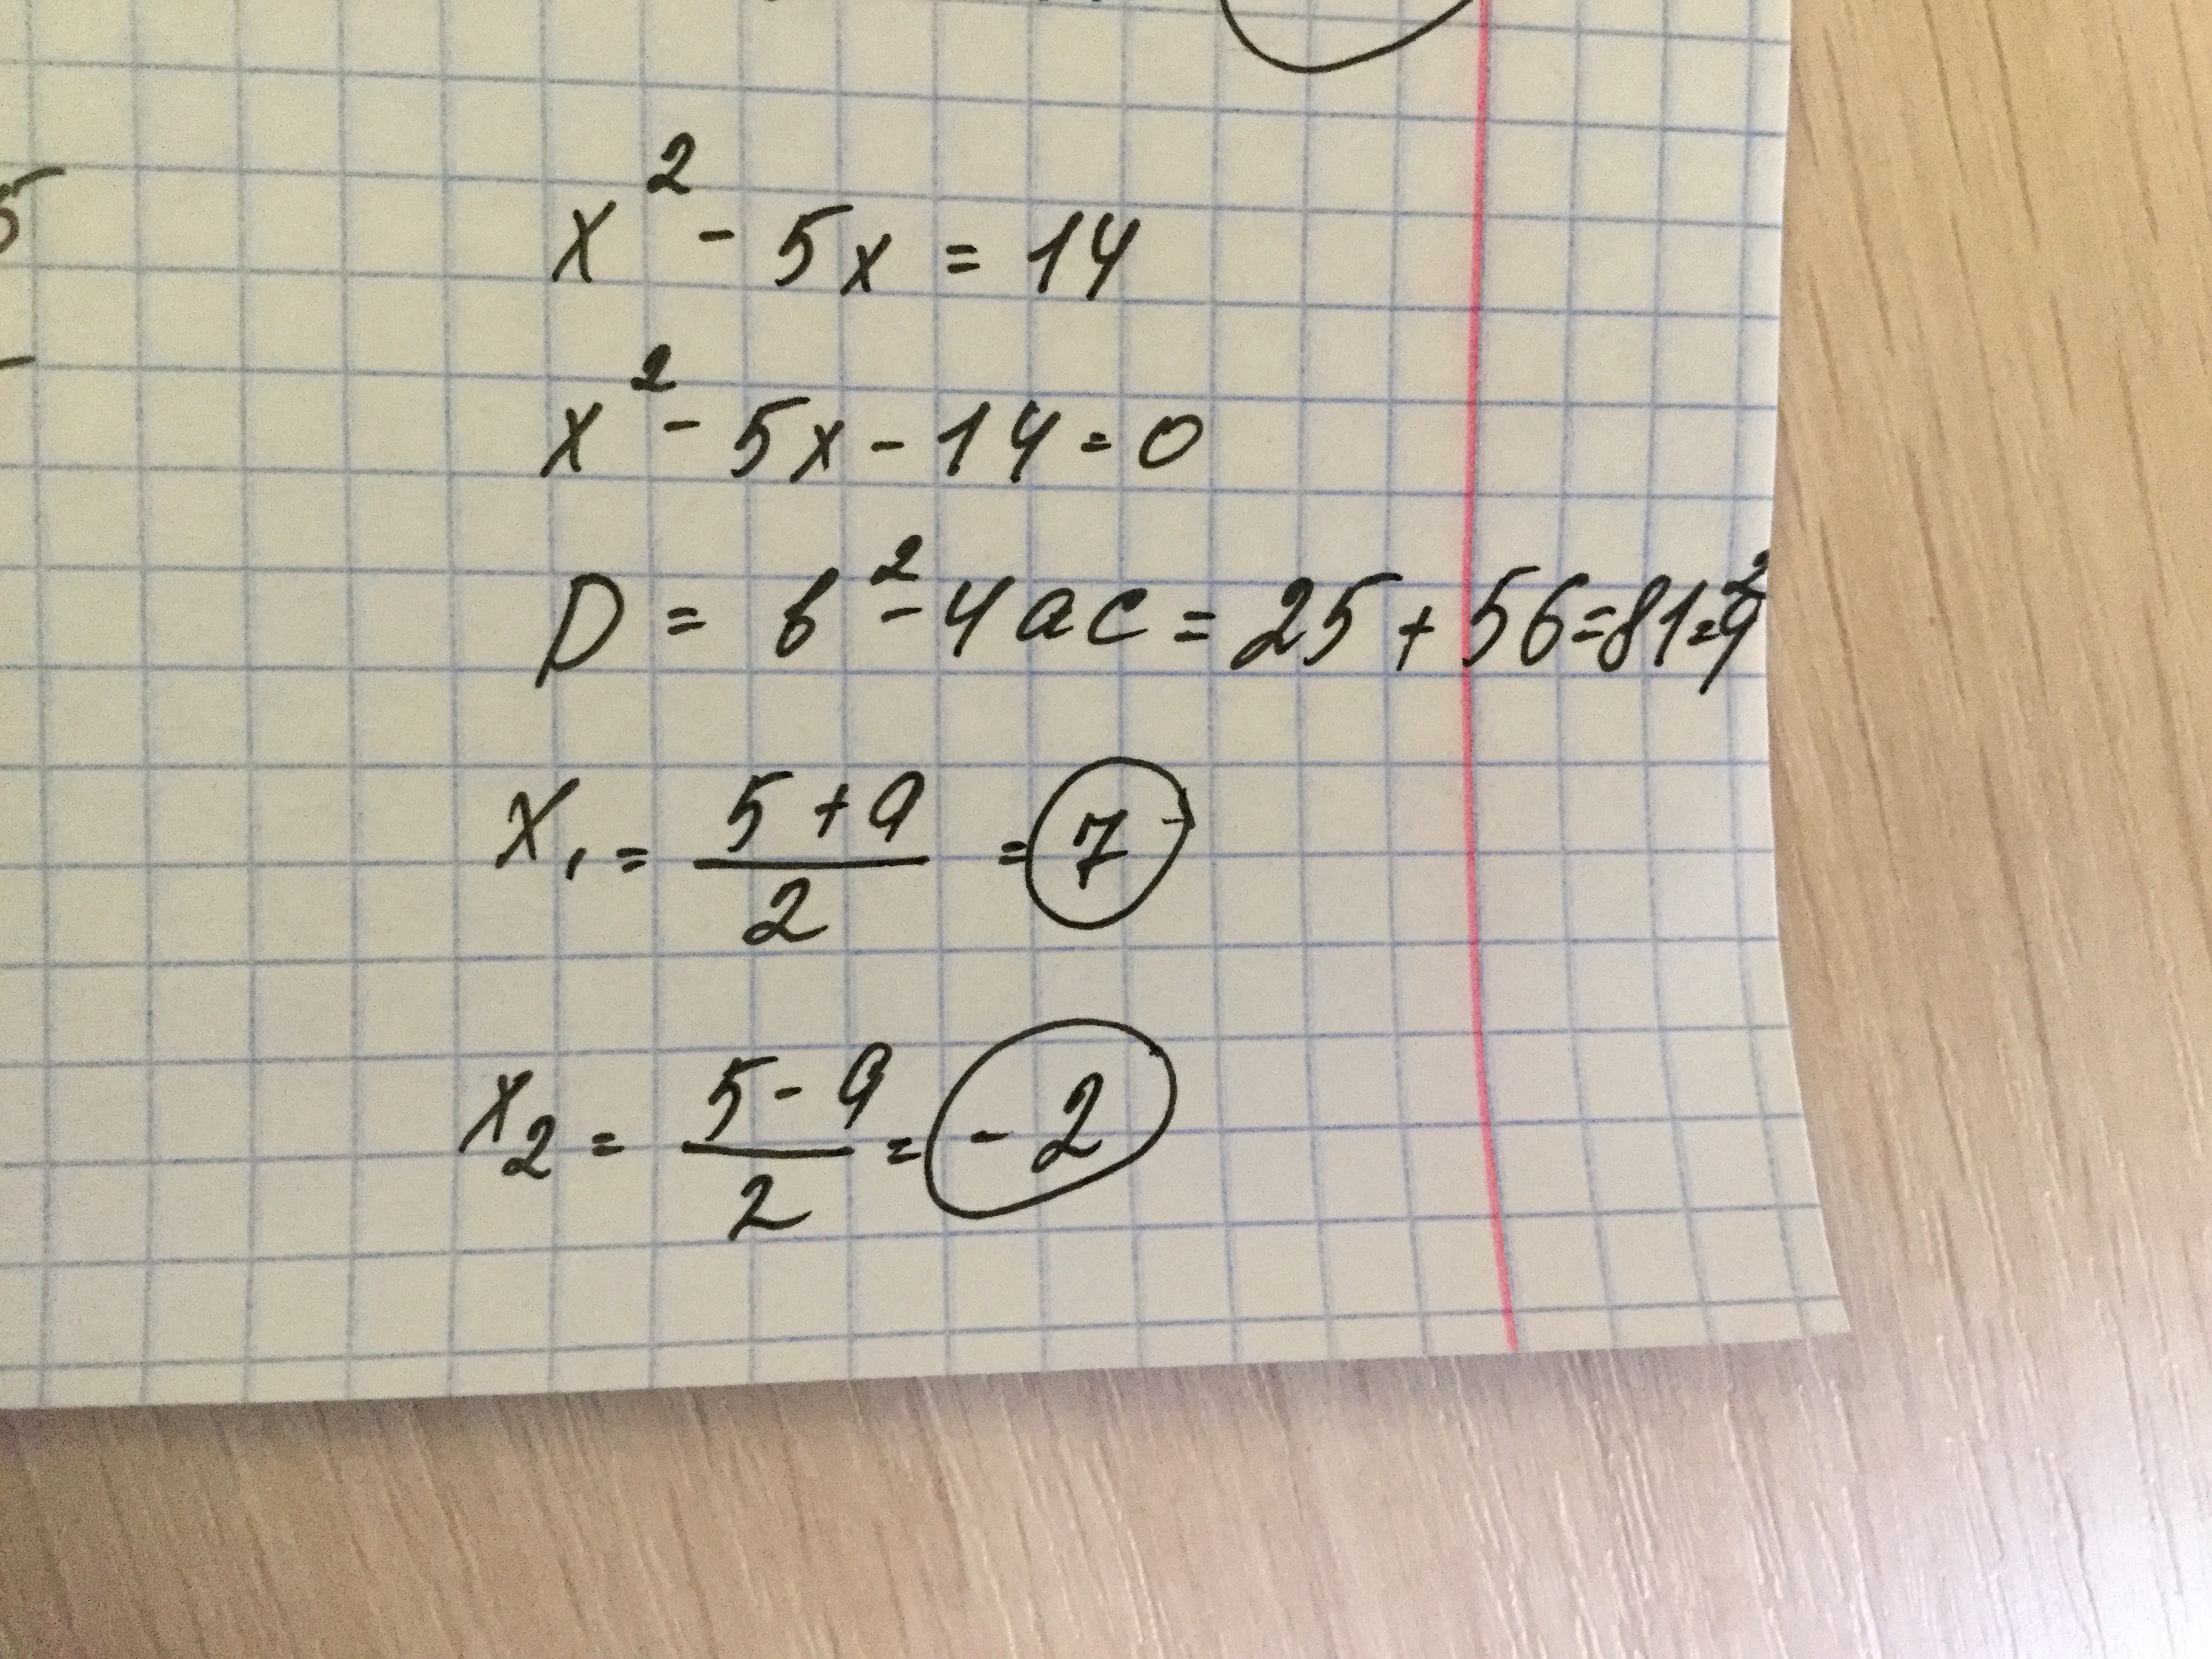 5
x² - 5x = 14
x² - 5x - 14 = 0
D = b² - 4ac = 25 + 56 = 81 = 9²
x₁ = (5 + 9)/2 = 7
x₂ = (5 - 9)/2 = -2